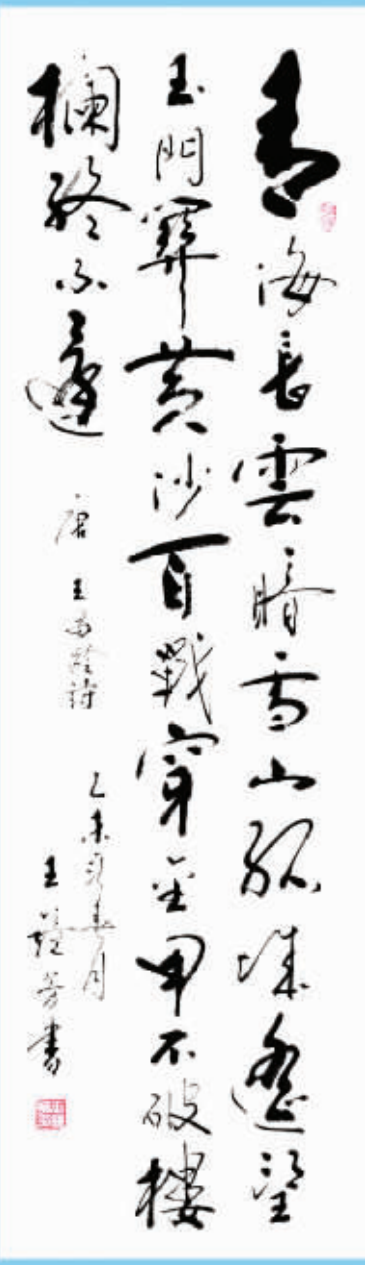 青海長雲暗雪山孤城遙望
玉門關黃沙百戰穿金甲不破樓
欄終不還
唐王昌齡詩
乙未春月
王芳書